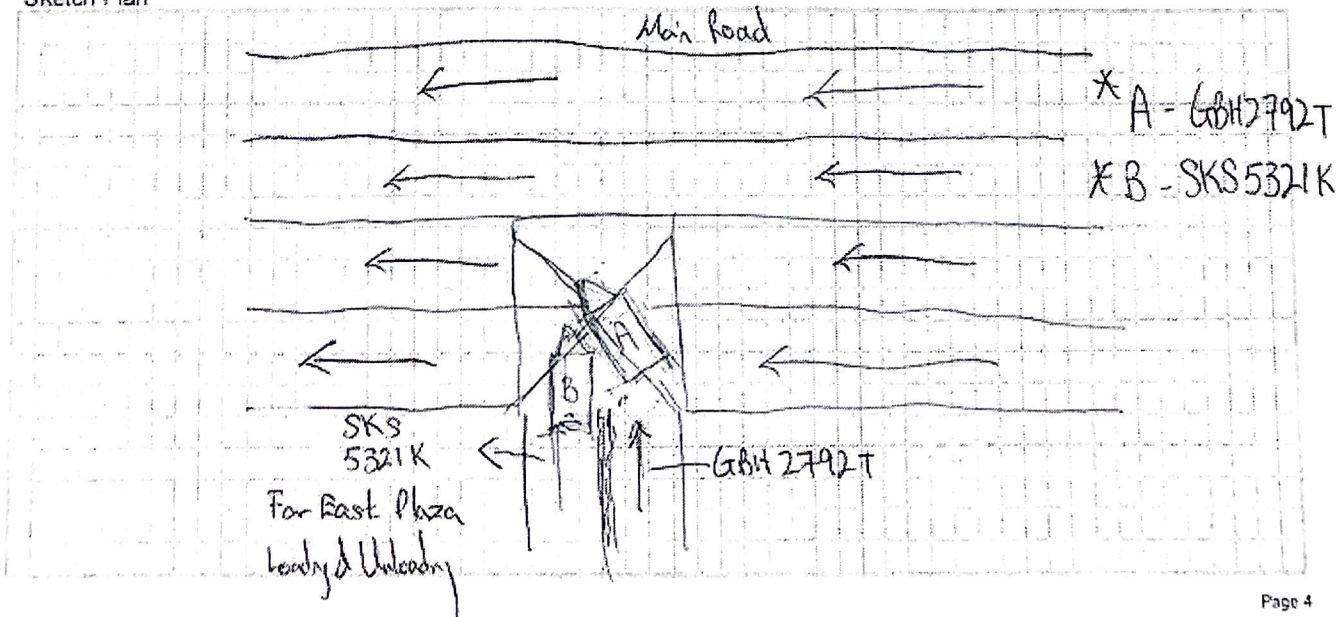 Sketch Plan
Main Road
* A - GBH2792T
* B - SKS5321K
A
B
SKS
5321K
GBH2792T
Far East Plaza
Loading & Unloading
Page 4